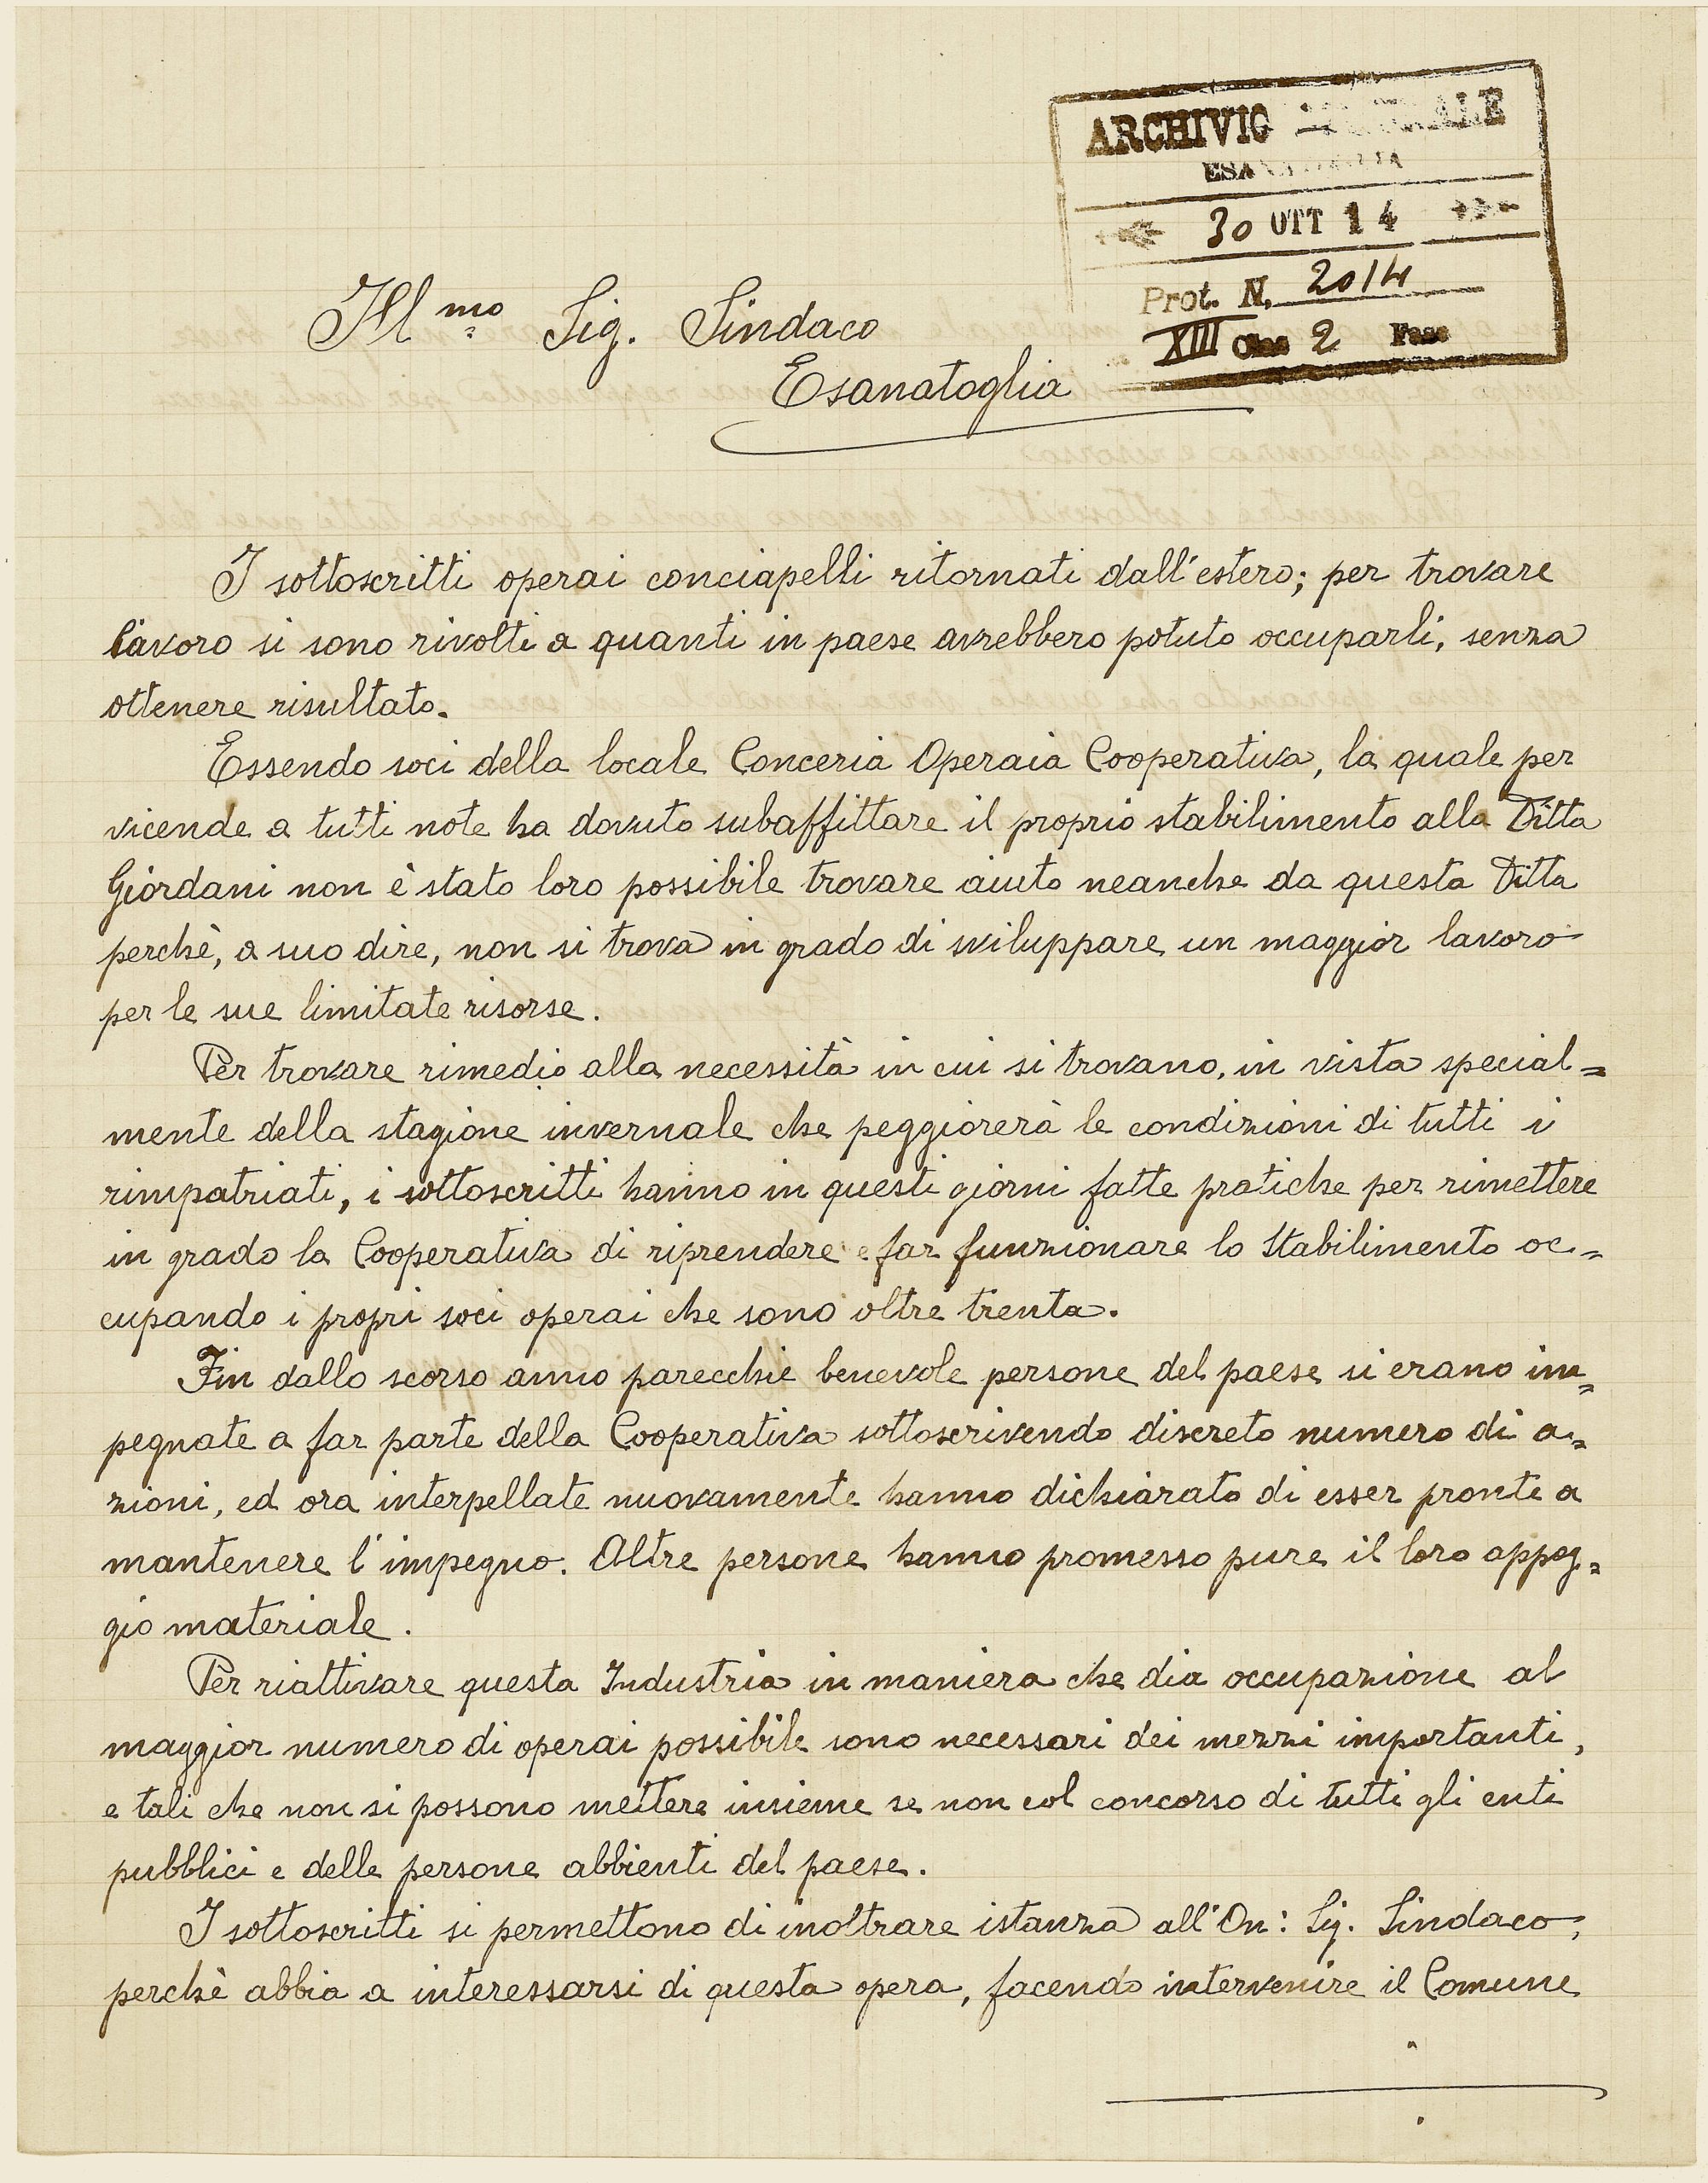 ARCHIVIO
30 OTT 14
Prot. N. 2014
XIII Clas 2 Fasc
Ill.mo Sig. Sindaco
Esanatoglia
I sottoscritti operai conciapelli ritornati dall'estero; per trovare
lavoro si sono rivolti a quanti in paese avrebbero potuto occuparli, senza
ottenere risultato.
Essendo soci della locale Conceria Operaia Cooperativa, la quale per
vicende a tutti note ha dovuto subaffittare il proprio stabilimento alla Ditta
Giordani non è stato loro possibile trovare aiuto neanche da questa Ditta
perchè, a suo dire, non si trova in grado di sviluppare un maggior lavoro
per le sue limitate risorse.
Per trovare rimedio alla necessità in cui si trovano, in vista special=
mente della stagione invernale che peggiorerà le condizioni di tutti i
rimpatriati, i sottoscritti hanno in questi giorni fatte pratiche per rimettere
in grado la Cooperativa di riprendere e far funzionare lo Stabilimento oc=
cupando i propri soci operai che sono oltre trenta.
Fin dallo scorso anno parecchie benevole persone del paese si erano im=
pegnate a far parte della Cooperativa sottoscrivendo discreto numero di a=
zioni, ed ora interpellate nuovamente hanno dichiarato di esser pronte a
mantenere l'impegno. Altre persone hanno promesso pure il loro appog=
gio materiale.
Per riattivare questa Industria in maniera che dia occupazione al
maggior numero di operai possibile sono necessari dei mezzi importanti,
e tali che non si possono mettere insieme se non col concorso di tutti gli enti
pubblici e delle persone abbienti del paese.
I sottoscritti si permettono di inoltrare istanza all'On: Sig. Sindaco,
perchè abbia a interessarsi di questa opera, facendo intervenire il Comune